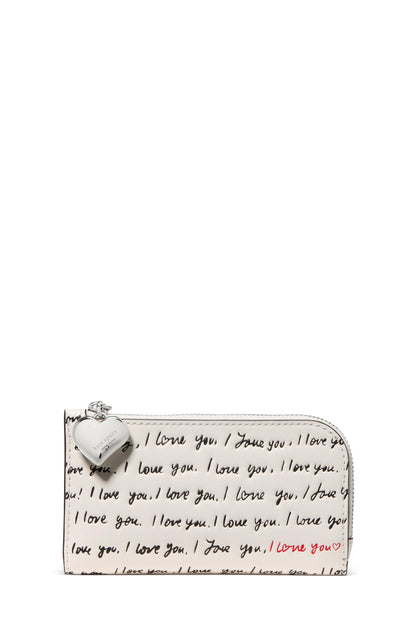 I love you, I love you, I love you
I love you. I love you. I love you.
u! I love you, I love you, I love
I love you. I love you. I love you.
love you. I love you. I love you, I love you♡